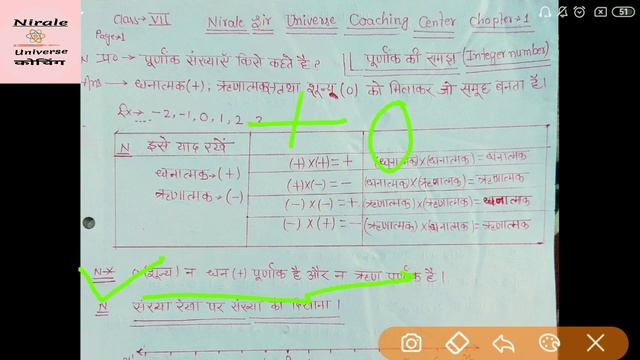 Nirale
Universe
कोचिंग
Class-VII Nirale Sir Universe Coaching Center Chapter-1
Page-1
51
N प्र० → पूर्णांक संख्याएँ किसे कहते हैं? पूर्णांक की समझ (Integer number)
Ans → धनात्मक(+), ऋणात्मक तथा शून्य (0) को मिलाकर जो समूह बनता है।
Ex → -2, -1, 0, 1, 2
N इसे याद रखें
धनात्मक → (+)
ऋणात्मक → (-)
(+)×(+)= + (धनात्मक)×(धनात्मक)= धनात्मक
(+)×(-)= - (धनात्मक)×(ऋणात्मक)= ऋणात्मक
(-)×(-)= + (ऋणात्मक)×(ऋणात्मक)= धनात्मक
(-)×(+)= - (ऋणात्मक)×(धनात्मक)= ऋणात्मक
N-x 0(शून्य) न धन(+) पूर्णांक है और न ऋण पूर्णांक है।
N संख्या रेखा पर संख्या को दिखाना।